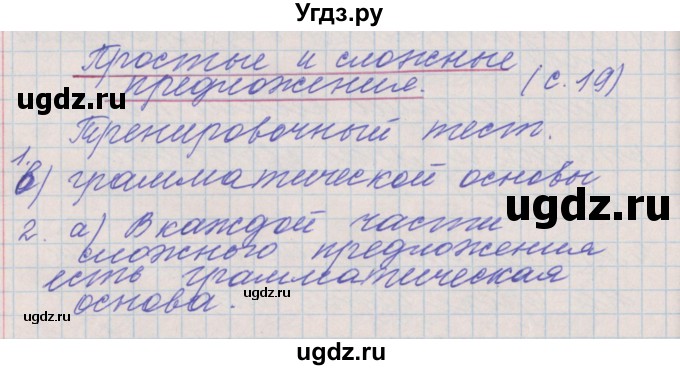 Угдз.ру
Простые и сложные
предложения. (с. 19)
ugdz.ru
ugdz.ru
Тренировочный тест.
ugdz.ru
1.
б) грамматической основы
ugdz.ru
2. а) В каждой части
сложного предложения
есть грамматическая
ugdz.ru
основа.
ugdz.ru
ugdz.ru
ugdz.ru